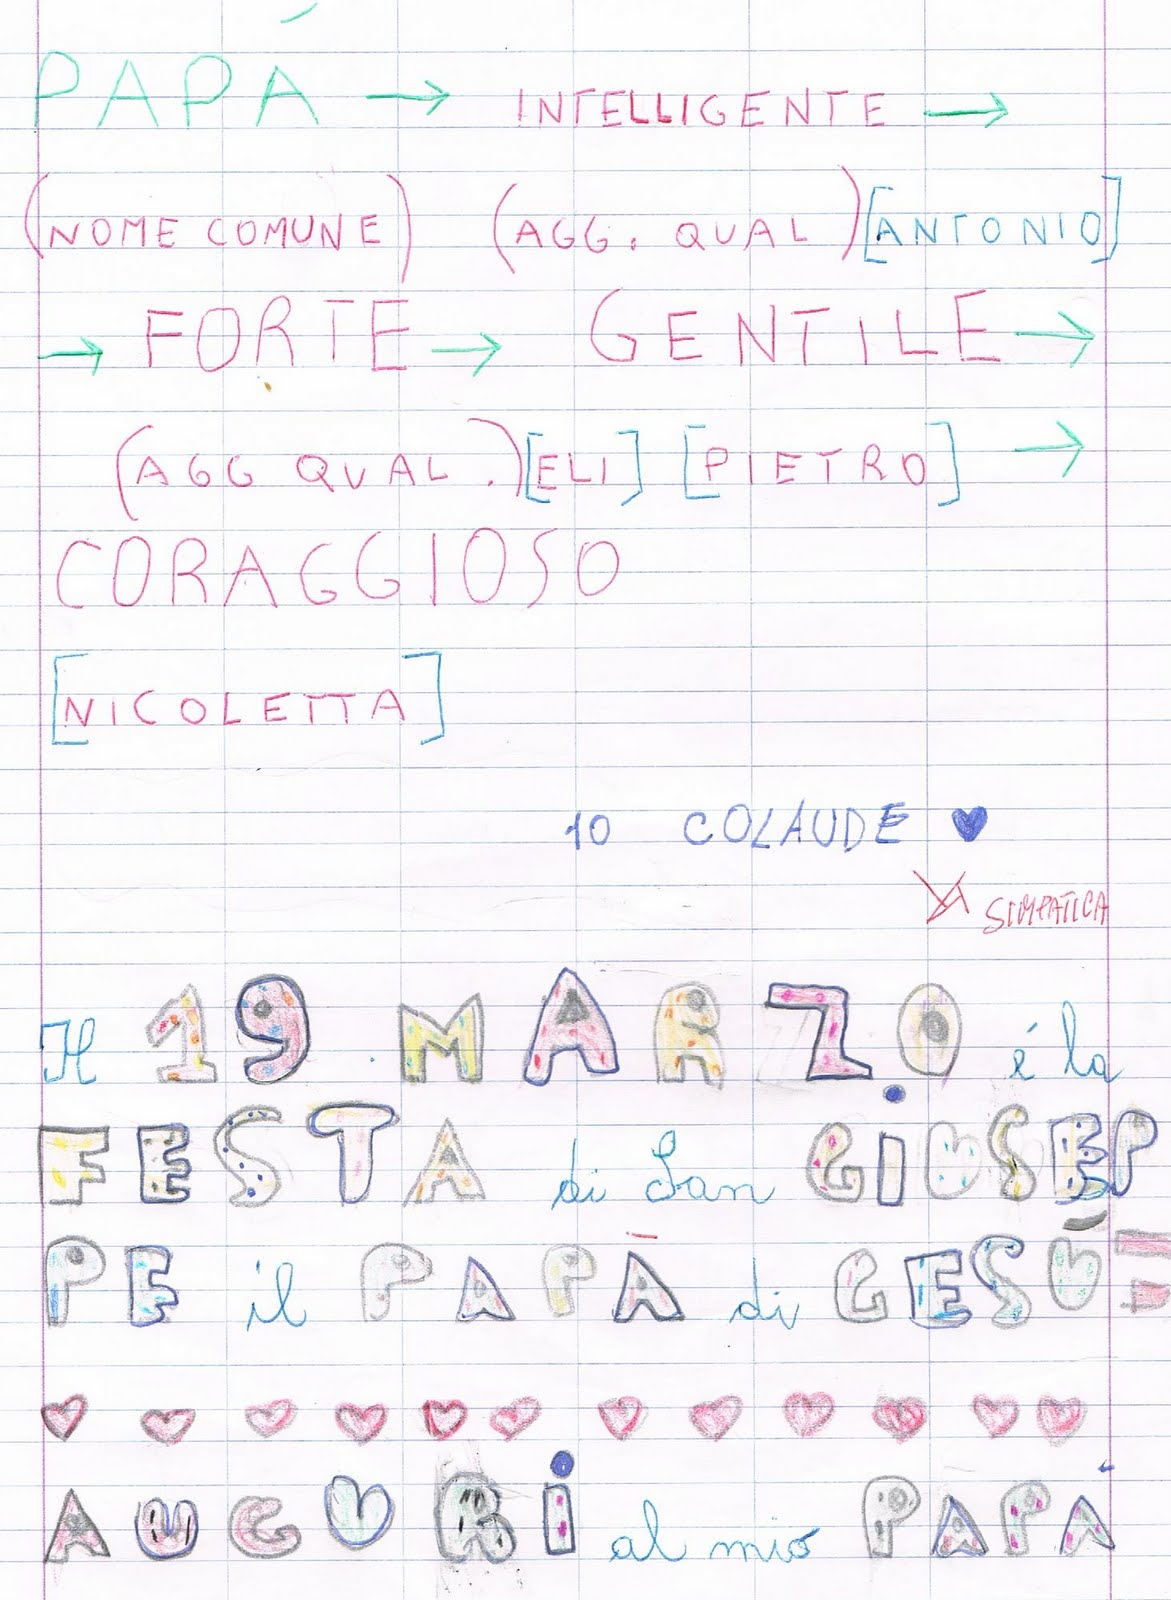 PAPÁ → INTELLIGENTE →
(NOME COMUNE) (AGG. QUAL) [ANTONIO]
→ FORTE → GENTILE →
(AGG QUAL.) [ELI] [PIETRO] →
CORAGGIOSO
[NICOLETTA]
10 COLAUDE ♥
SIMPATICA
Il 19 MARZO é la
FESTA di San GIUSEP
PE il PAPÀ di GESÚ=
♥ ♥ ♥ ♥ ♥ ♥ ♥ ♥ ♥ ♥ ♥ ♥
AUGURi al mio PAPÁ